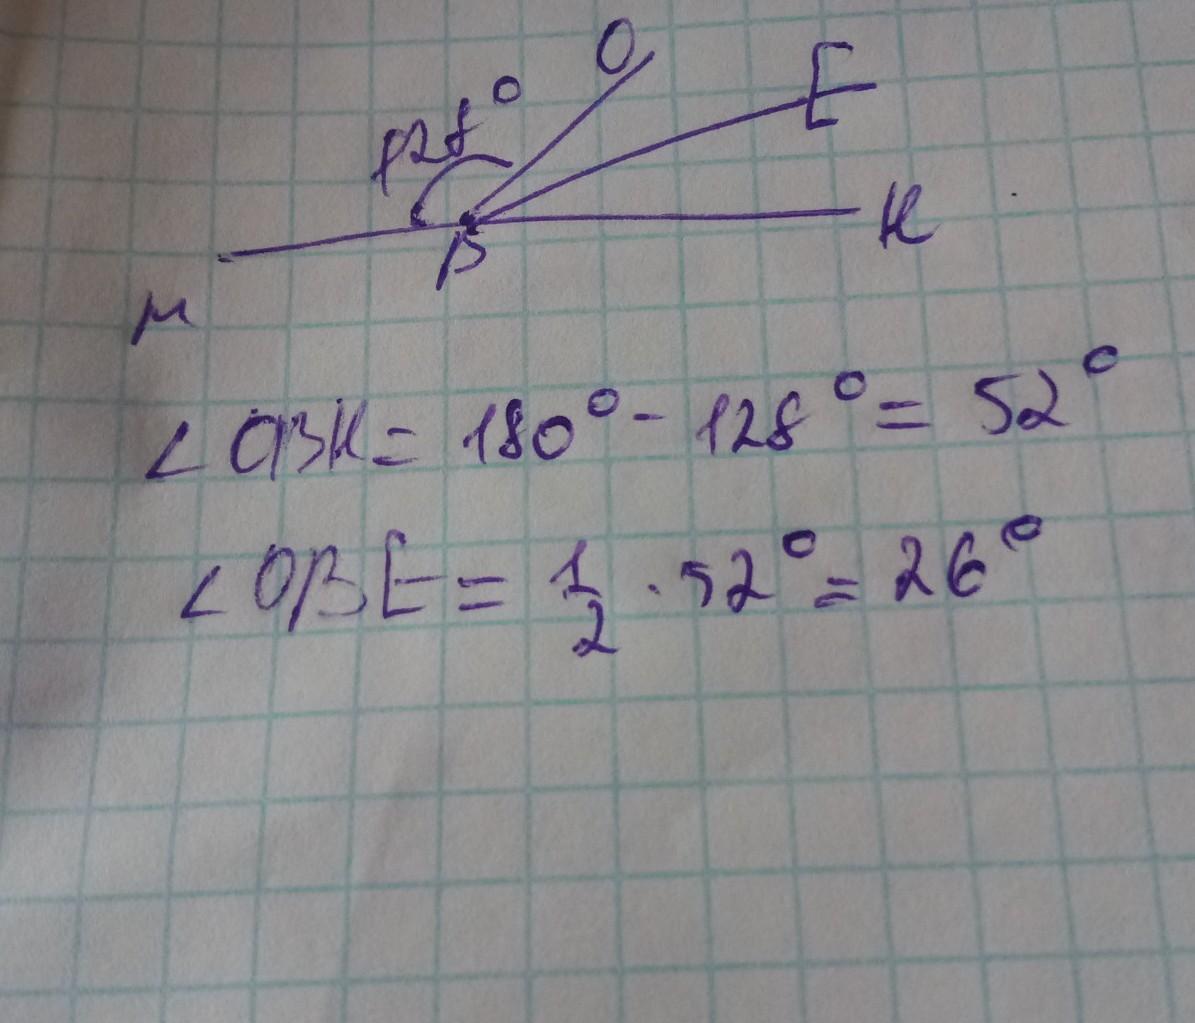 O
E
128°
K
B
M
∠OBK = 180° - 128° = 52°
∠OBE = 1/2 · 52° = 26°